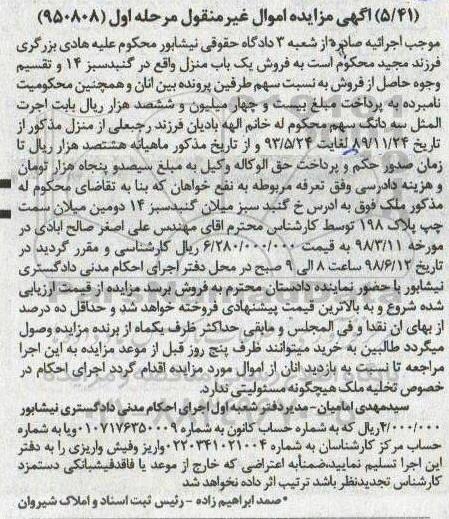 (۵/۴۱) آگهی مزایده اموال غیرمنقول مرحله اول (۹۵۰۸۰۸)
موجب اجرائیه صادره از شعبه ۳ دادگاه حقوقی نیشابور محکوم علیه هادی بزرگری
فرزند مجید محکوم است به فروش یک باب منزل واقع در گنبدسبز ۱۴ و تقسیم
وجوه حاصل از فروش به نسبت سهم طرفین پرونده بین انان و همچنین محکومیت
نامبرده به پرداخت مبلغ بیست و چهار میلیون و ششصد هزار ریال بابت اجرت
المثل سه دانگ سهم محکوم له خانم الهه بادیان فرزند رجبعلی از منزل مذکور از
تاریخ ۸۹/۱۱/۲۴ لغایت ۹۳/۵/۲۴ و از تاریخ مذکور ماهیانه هشتصد هزار ریال تا
زمان صدور حکم و پرداخت حق الوکاله وکیل به مبلغ سیصدو پنجاه هزار تومان
و هزینه دادرسی وفق تعرفه مربوطه به نفع خواهان که بنا به تقاضای محکوم له
مذکور ملک فوق به ادرس خ گنبد سبز میلان گنبدسبز ۱۴ دومین میلان سمت
چپ پلاک ۱۹۸ توسط کارشناس محترم اقای مهندس علی اصغر صالح ابادی در
مورخه ۹۸/۳/۱۱ به قیمت ۶/۲۸۰/۰۰۰/۰۰۰ ریال کارشناسی و مقرر گردید در
تاریخ ۹۸/۶/۱۲ ساعت ۸ الی ۹ صبح در محل دفتر اجرای احکام مدنی دادگستری
نیشابور با حضور نماینده دادستان محترم به فروش برسد مزایده از قیمت ارزیابی
شده شروع و به بالاترین قیمت پیشنهادی فروخته خواهد شد و حداقل ده درصد
از بهای ان نقدا و فی المجلس و مابقی حداکثر ظرف یکماه از برنده مزایده وصول
میگردد طالبین به خرید میتوانند ظرف پنج روز قبل از موعد مزایده به این اجرا
مراجعه تا نسبت به بازدید انان از اموال مورد مزایده اقدام گردد اجرای احکام در
خصوص تخلیه ملک هیچگونه مسئولیتی ندارد.
سیدمهدی امامیان - مدیر دفتر شعبه اول اجرای احکام مدنی دادگستری نیشابور
۴/۰۰۰/۰۰۰ریال که به شماره حساب کانون به شماره ۰۱۰۷۱۷۶۳۵۰۰۰۹ ویا به شماره
حساب مرکز کارشناسان به شماره ۰۲۲۰۳۴۱۰۲۱۰۰۴ واریز وفیش واریزی را به دفتر
این اجرا تسلیم نمایید،ضمنابه اعتراضی که خارج از موعد یا فاقدفیشبانکی دستمزد
کارشناس تجدیدنظر باشد ترتیب اثر داده نخواهد شد
*صمد ابراهیم زاده - رئیس ثبت اسناد و املاک شیروان